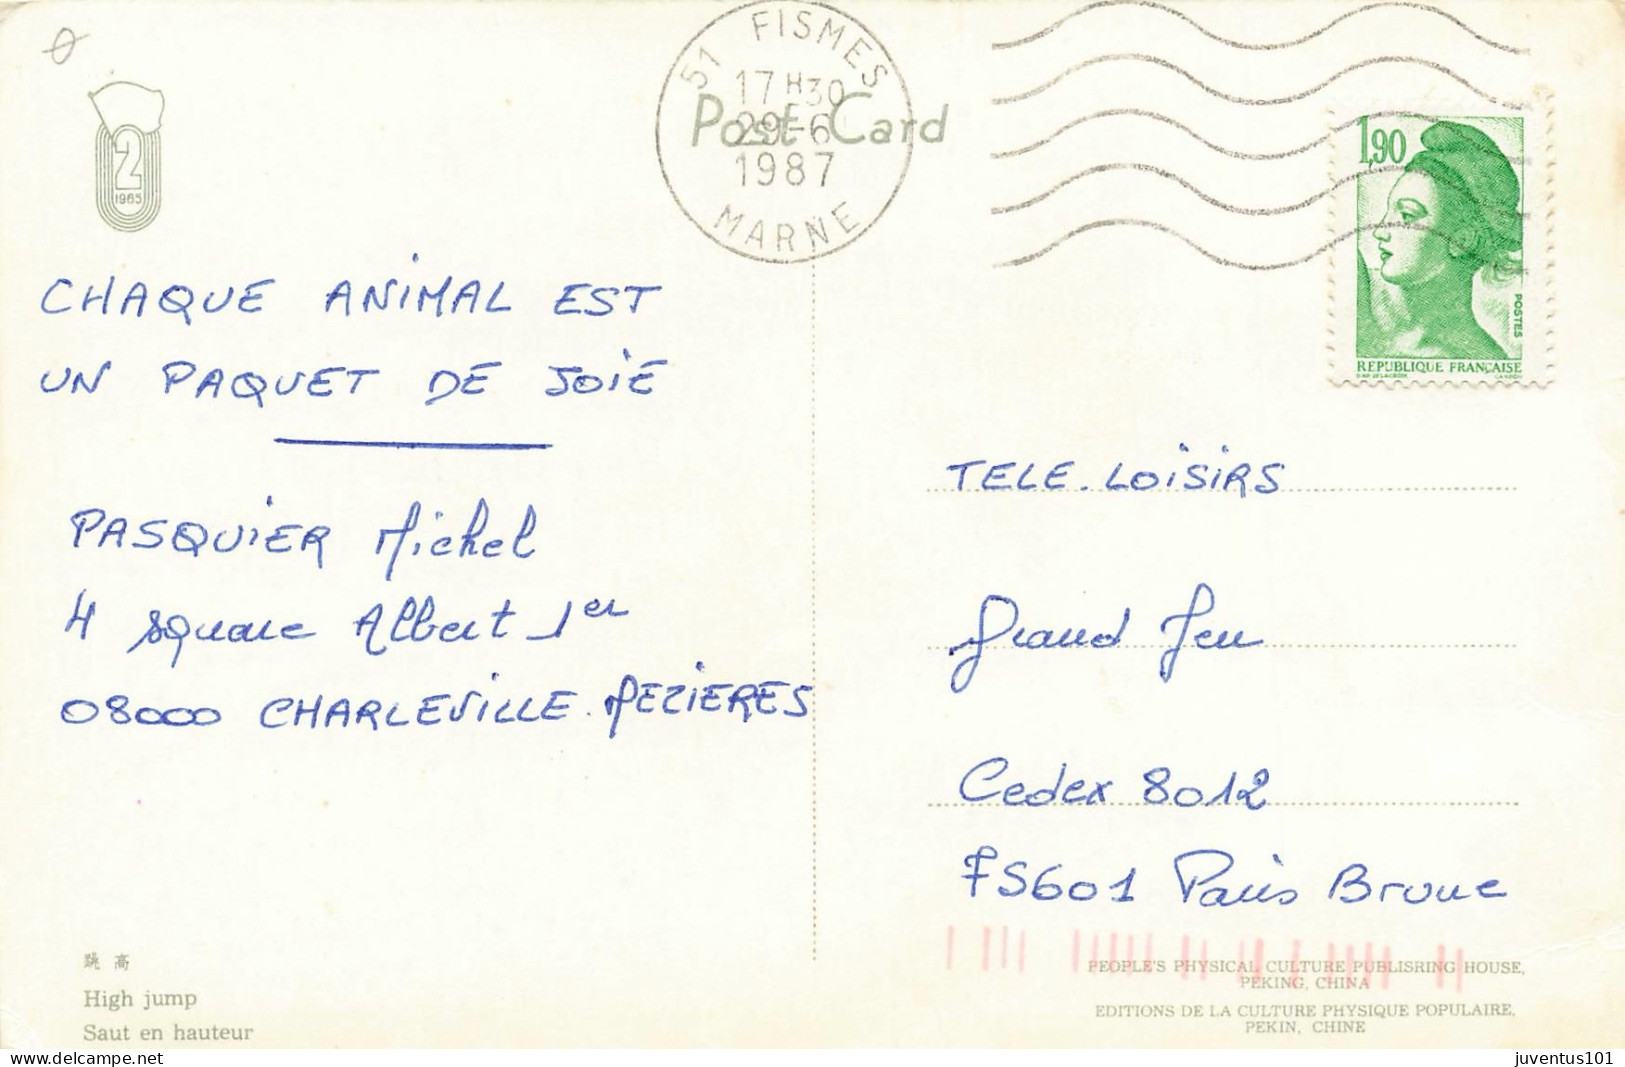 51 FISMES
17 H 30
29-6
1987
MARNE
Post Card
2
1965
1,90
POSTES
REPUBLIQUE FRANÇAISE
CHAQUE ANIMAL EST
UN PAQUET DE JOIE
PASQUIER Michel
4 square Albert 1er
08000 CHARLEVILLE.MEZIERES
TELE.LOISIRS
Grand Jeu
Cedex 8012
75601 Paris Brune
跳高
High jump
Saut en hauteur
PEOPLE'S PHYSICAL CULTURE PUBLISRING HOUSE,
PEKING, CHINA
EDITIONS DE LA CULTURE PHYSIQUE POPULAIRE,
PEKIN, CHINE
juventus101